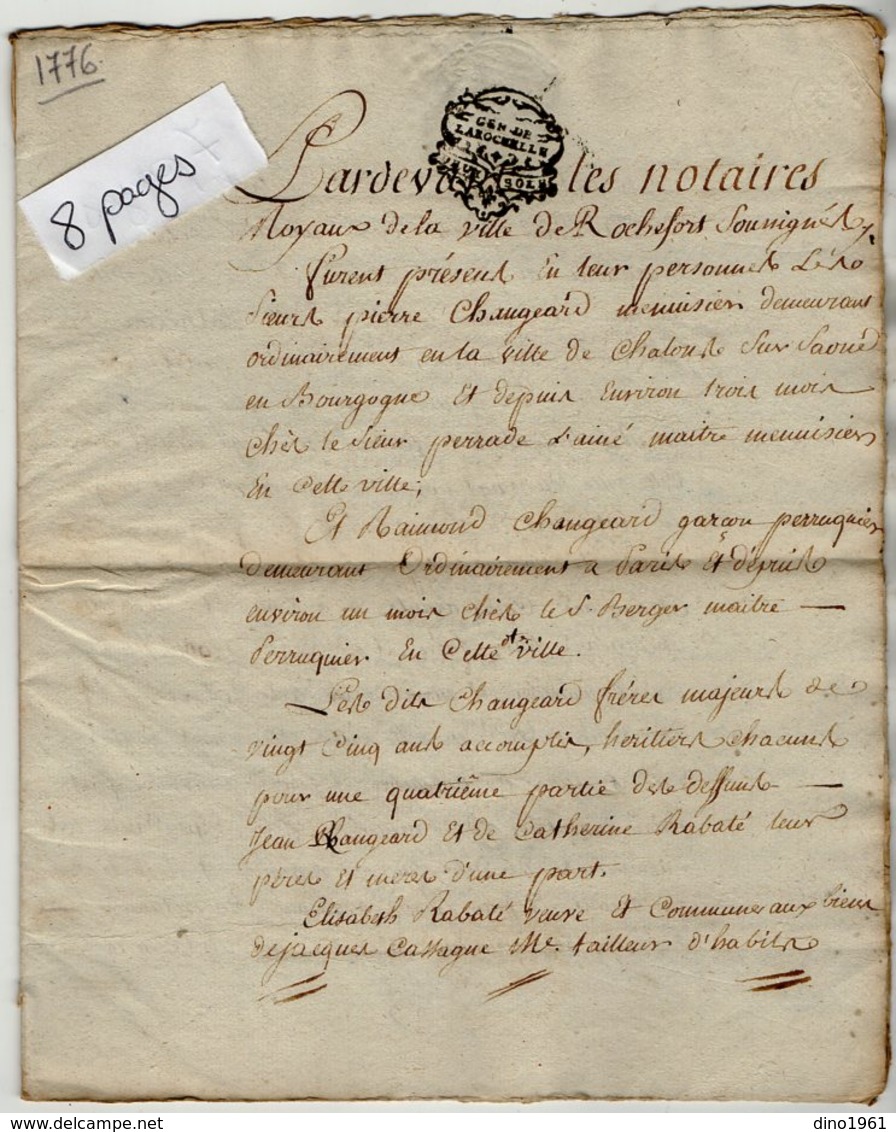 1776
8 pages
GEN. DE
LAROCHELLE
DEUX SOLS
Pardevant les notaires
Royaux de la ville de Rochefort Soussignés,
furent présens En leur personnes Les
Sieurs pierre Changeard menuisier demeurant
ordinairement en la ville de Chalons Sur Saone
en Bourgogne Et depuis Environ trois mois
chès le Sieur perrade L'ainé maitre menuisier
En Cette ville;
Et Raimond Changeard garçon perruquier
demeurant Ordinairement a Paris Et dépuis
environ un mois chès le S. Berger maitre —
Perruquier En Cette dte ville.
Les dits Changeard fréres majeurs de
vingt Cinq ans accomplis, heritiers chacuns
pour une quatriême partie des deffuns —
Jean Changeard Et de Catherine Rabaté leur
péres Et meres d'une part.
Elisabeth Rabaté veuve Et Commune aux biens
de jacques Cassagne Me. tailleur d'habits
dino1961